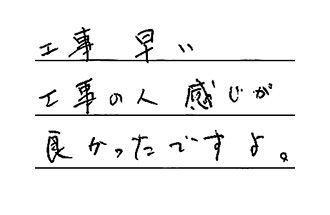 工事 早い
工事の人 感じが
良かったですよ。